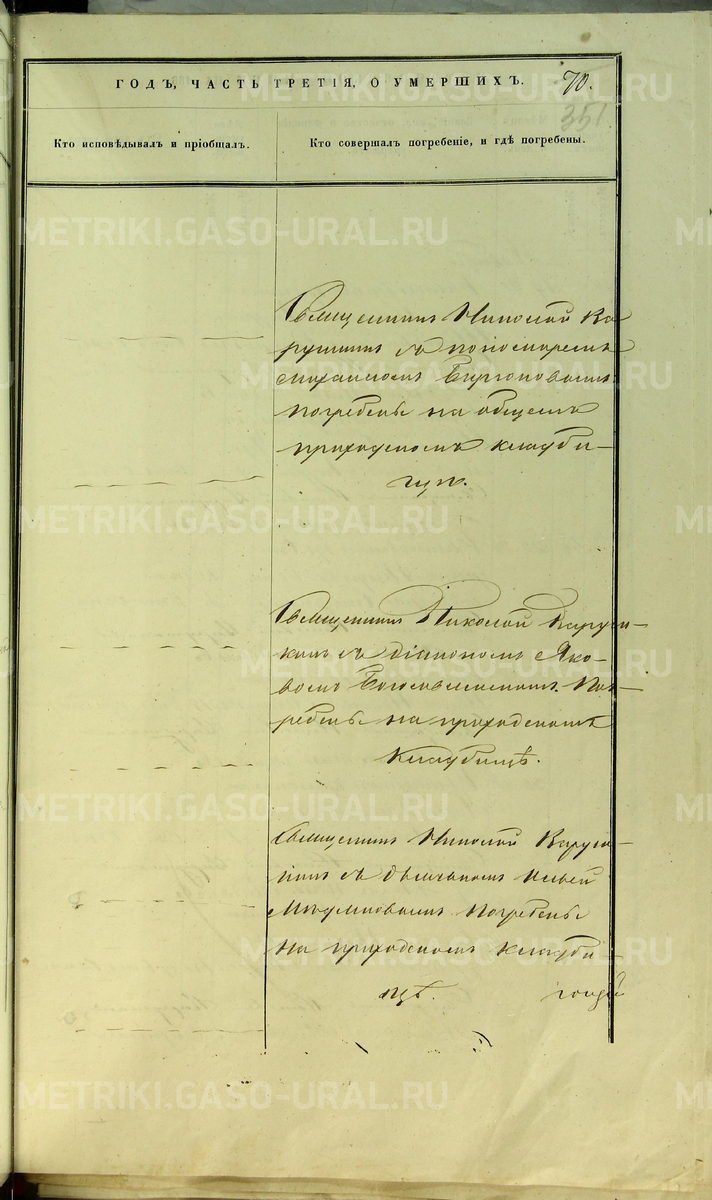 ГОДЪ, ЧАСТЬ ТРЕТІЯ, О УМЕРШИХЪ.
70.
351
Кто исповѣдывалъ и пріобщалъ.
Кто совершалъ погребеніе, и гдѣ погребены.
Священникъ Николай
съ пономаремъ
Михаиломъ
погребены на общемъ
приходскомъ кладби-
щѣ.
Священникъ Николай
съ діакономъ Яко-
вомъ Богоявленскимъ. Пог-
ребены на приходскомъ
кладбищѣ.
Священникъ Николай
съ дьячкомъ Ильей
погребены
на приходскомъ кладби-
щѣ.
METRIKI.GASO-URAL.RU